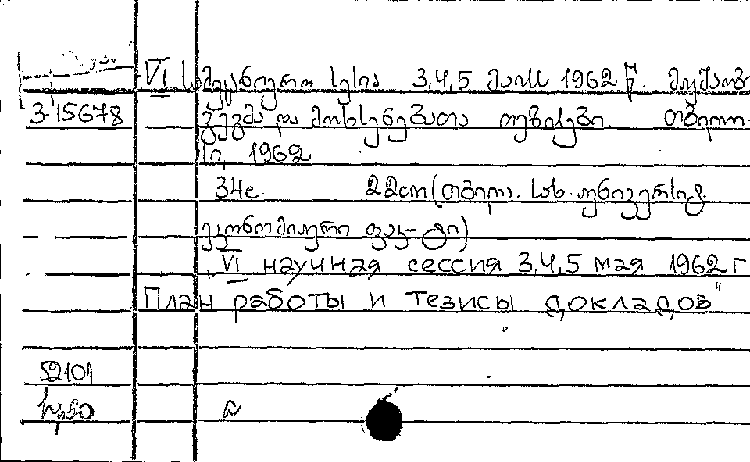 VI სამეცნიერო სესია 3,4,5 მაისი 1962 წ. მუშაობ
3-15678 გეგმა და მოხსენებათა თეზისები. თბილი
სი, 1962
34с. 22см (თბილ. სახ. უნივერსიტ.
ეკონომიკური ფაკ-ტი)
VI научная сессия 3,4,5 мая 1962 г
План работы и тезисы докладов"
52101